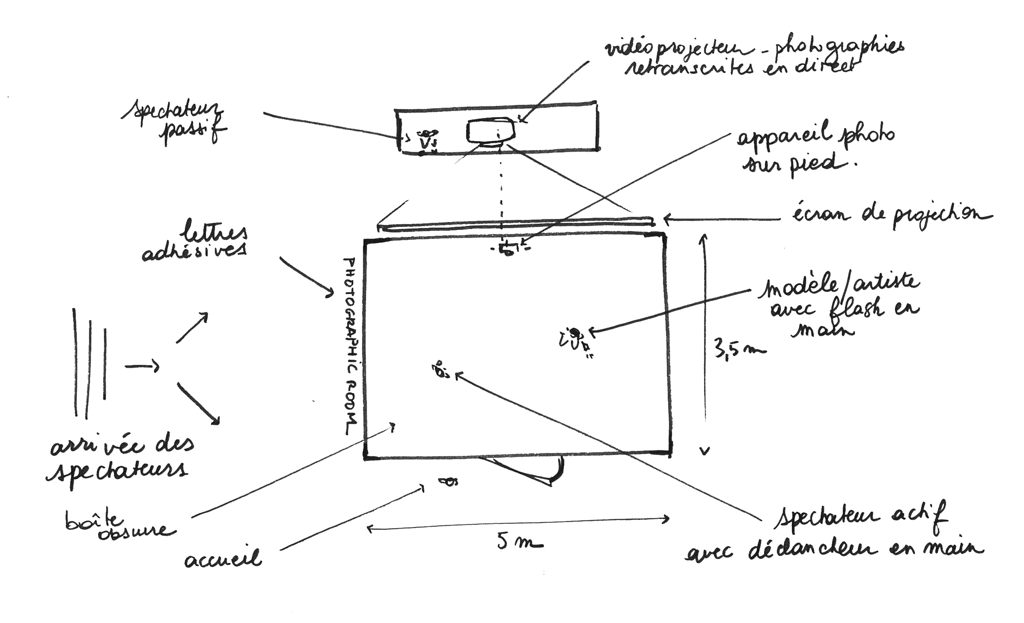 vidéoprojecteur - photographies
retranscrites en direct
spectateur
passif
appareil photo
sur pied.
écran de projection
lettres
adhésives
PHOTOGRAPHIC ROOM
modèle/artiste
avec flash en
main
3,5 m
arrivée des
spectateurs
boîte
obsure
accueil
5 m
spectateur actif
avec déclancheur en main